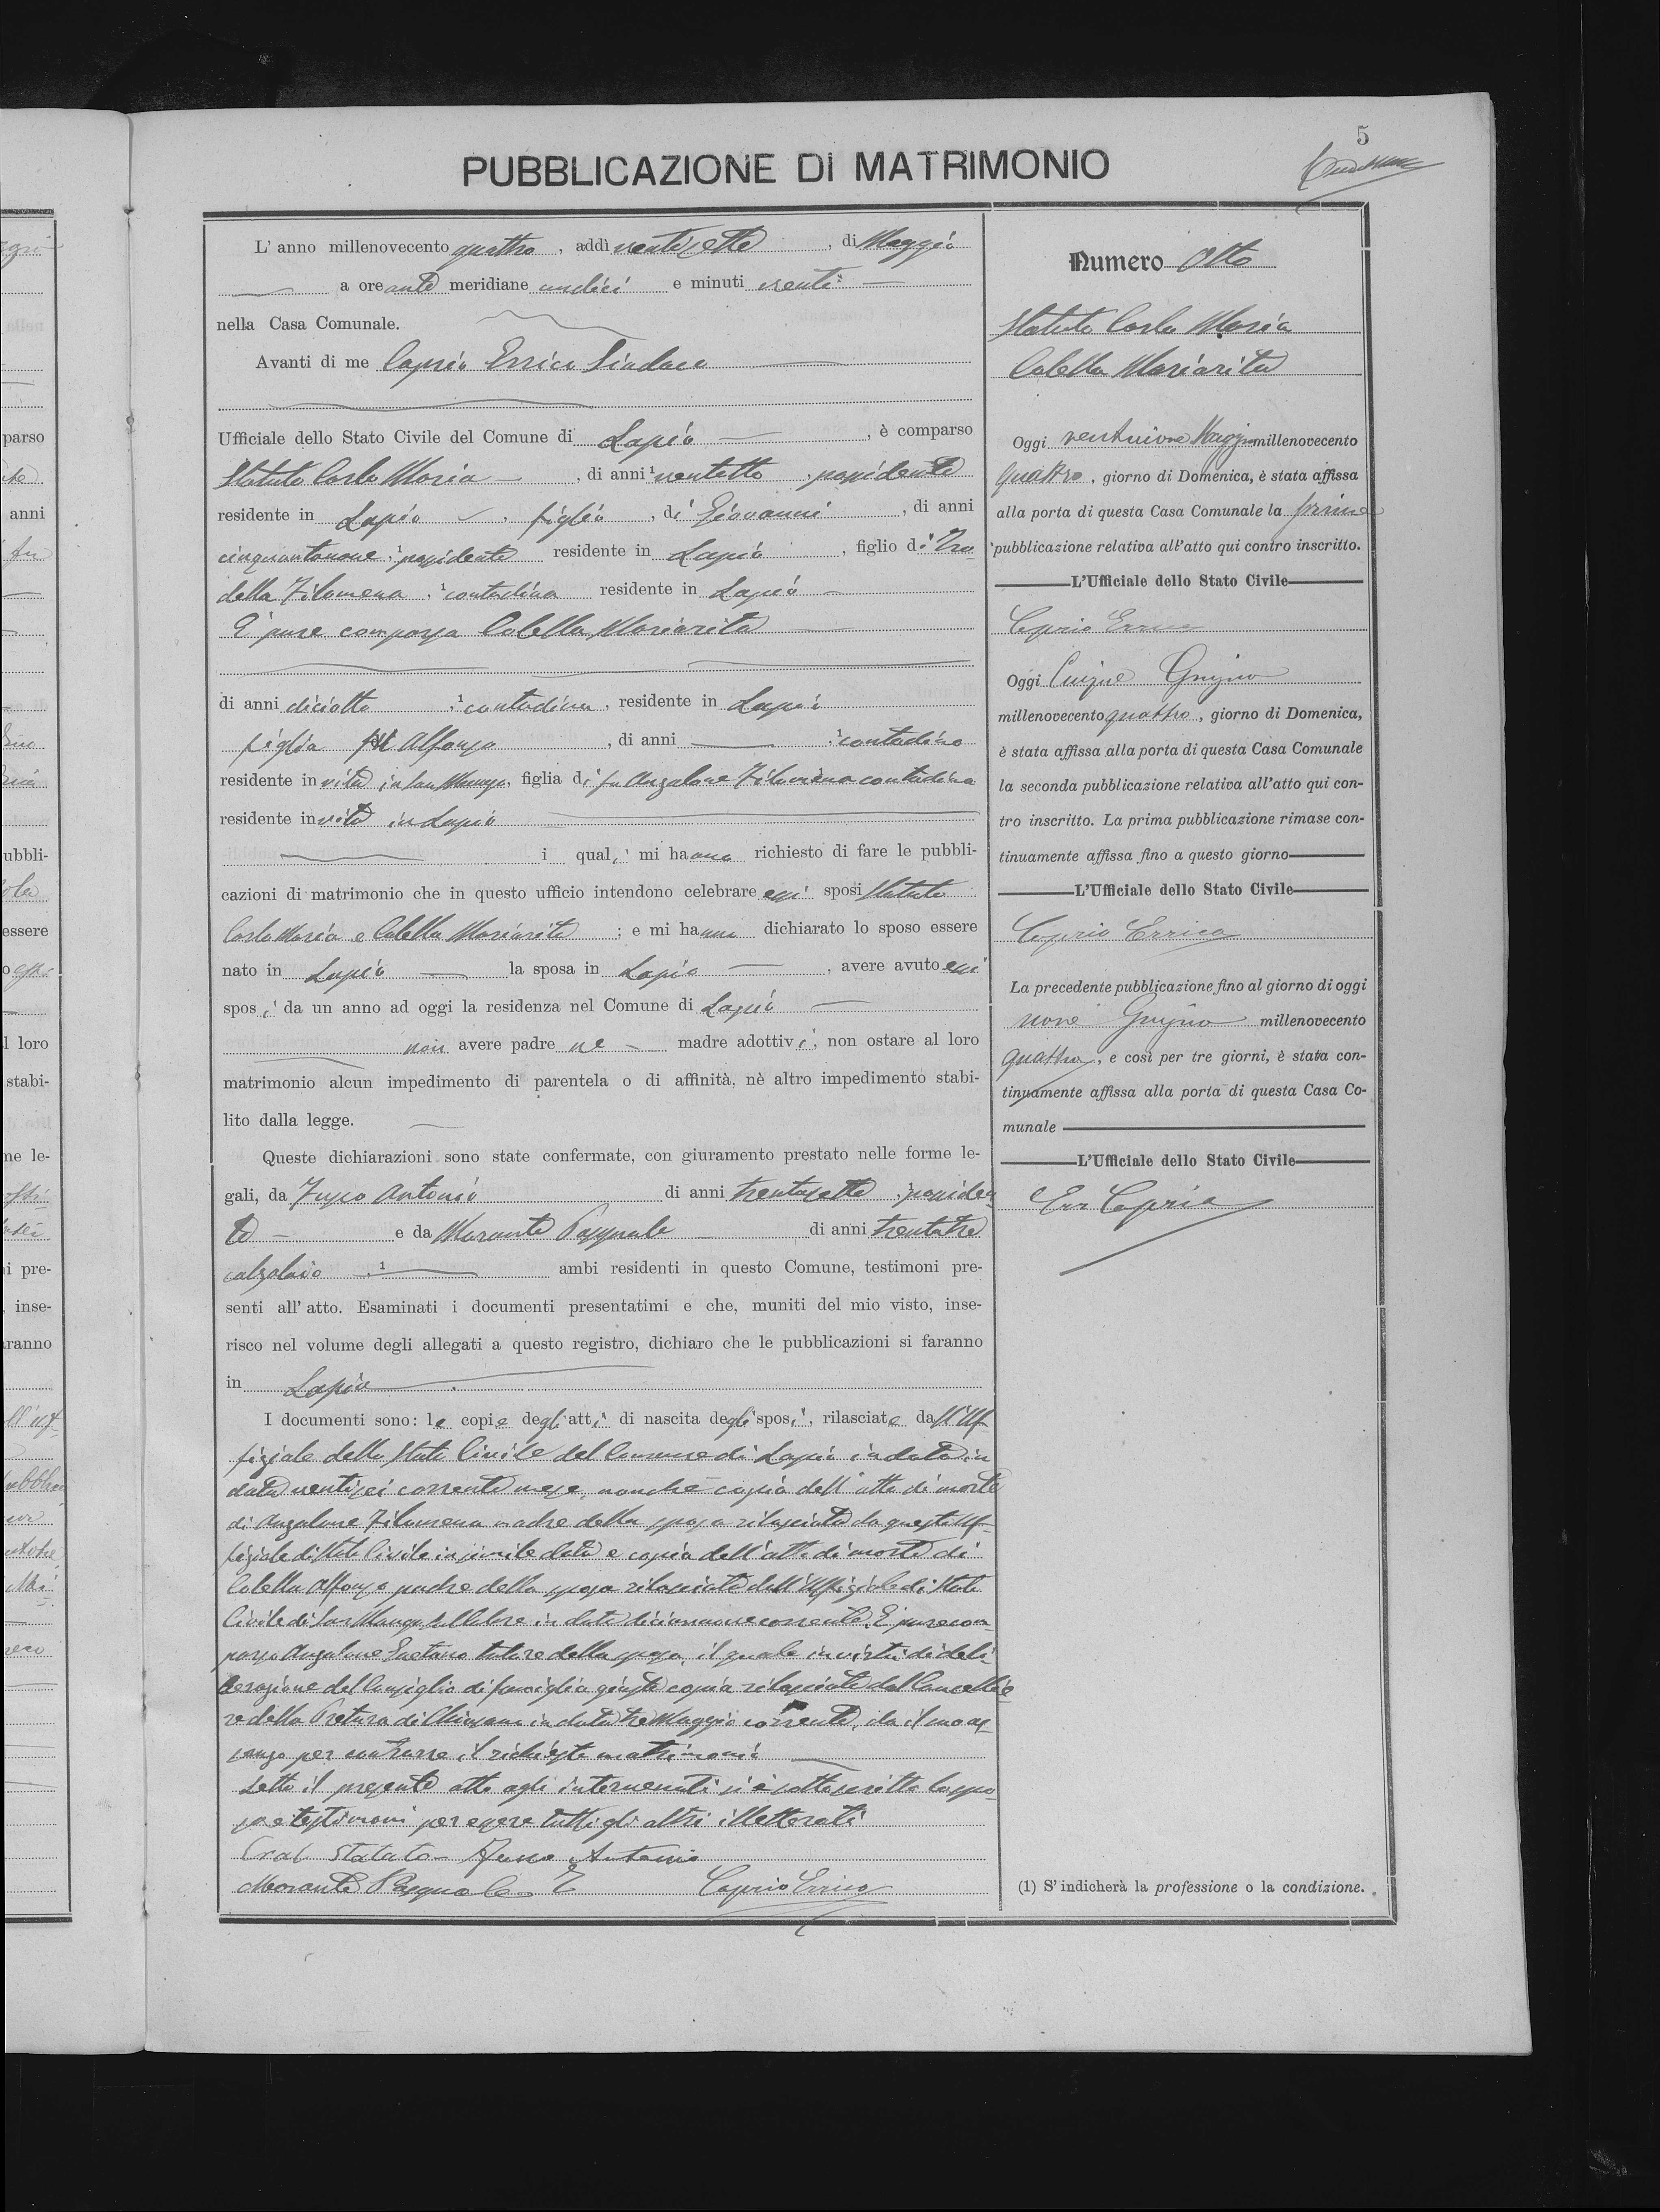 5
PUBBLICAZIONE DI MATRIMONIO
L'anno millenovecento quattro, addì ventisette, di Maggio
a ore ante meridiane undici e minuti venti
nella Casa Comunale.
Avanti di me Caprio Errico Sindaco
Ufficiale dello Stato Civile del Comune di Lapio, è comparso
Statuto Carlo Maria, di anni ventotto, possidente
residente in Lapio, figlio, di Giovanni, di anni
cinquantanove, possidente residente in Lapio, figlio di Tro-
della Filomena, contadina residente in Lapio
È pure comparsa Colella Mariarita
di anni diciotto, contadina, residente in Lapio
figlia di Alfonso, di anni contadino
residente in vita in San Mango, figlia di fu Anzalone Filomena contadina
residente in vita in Lapio
i quali mi hanno richiesto di fare le pubbli-
cazioni di matrimonio che in questo ufficio intendono celebrare essi sposi Statuto
Carlo Maria e Colella Mariarita; e mi hanno dichiarato lo sposo essere
nato in Lapio la sposa in Lapio, avere avuto essi
sposi da un anno ad oggi la residenza nel Comune di Lapio
non avere padre ne madre adottivi, non ostare al loro
matrimonio alcun impedimento di parentela o di affinità, nè altro impedimento stabi-
lito dalla legge.
Queste dichiarazioni sono state confermate, con giuramento prestato nelle forme le-
gali, da Antonio di anni trentasette, possiden-
te e da Morante Pasquale di anni trentatre
calzolaio, 1 ambi residenti in questo Comune, testimoni pre-
senti all'atto. Esaminati i documenti presentatimi e che, muniti del mio visto, inse-
risco nel volume degli allegati a questo registro, dichiaro che le pubblicazioni si faranno
in Lapio.
I documenti sono: le copie degli atti di nascita degli sposi, rilasciate dall'Uf-
fiziale dello Stato Civile del Comune di Lapio in data in
data ventisei corrente mese, nonché copia dell'atto di morte
di Anzalone Filomena madre della sposa rilasciata da questo Uf-
fiziale di Stato Civile in simile data e copia dell'atto di morte di
Colella Alfonso padre della sposa rilasciata dall'Uffiziale di Stato
Civile di San Mango sul Calore in data diciannove corrente. È pure com-
parso Anzalone Gaetano tutore della sposa, il quale in virtù di deli-
berazione del Consiglio di famiglia giusta copia rilasciata dal Cancellie-
re della Pretura di Chiusano in data tre Maggio corrente, da il suo as-
senso per contrarre il richiesto matrimonio
Letto il presente atto agli intervenuti si è sottoscritto lo spo-
so e testimoni per essere tutti gli altri illetterati
Statuto Antonio
Morante Pasquale
Caprio Errico
Numero Otto
Statuto Carlo Maria
Colella Mariarita
Oggi ventinove Maggio millenovecento
quattro, giorno di Domenica, è stata affissa
alla porta di questa Casa Comunale la prima
pubblicazione relativa all'atto qui contro inscritto.
L'Ufficiale dello Stato Civile
Caprio Errico
Oggi Cinque Giugno
millenovecento quattro, giorno di Domenica,
è stata affissa alla porta di questa Casa Comunale
la seconda pubblicazione relativa all'atto qui con-
tro inscritto. La prima pubblicazione rimase con-
tinuamente affissa fino a questo giorno
L'Ufficiale dello Stato Civile
Caprio Errico
La precedente pubblicazione fino al giorno di oggi
nove Giugno millenovecento
quattro, e così per tre giorni, è stata con-
tinuamente affissa alla porta di questa Casa Co-
munale
L'Ufficiale dello Stato Civile
Err Caprio
(1) S'indicherà la professione o la condizione.